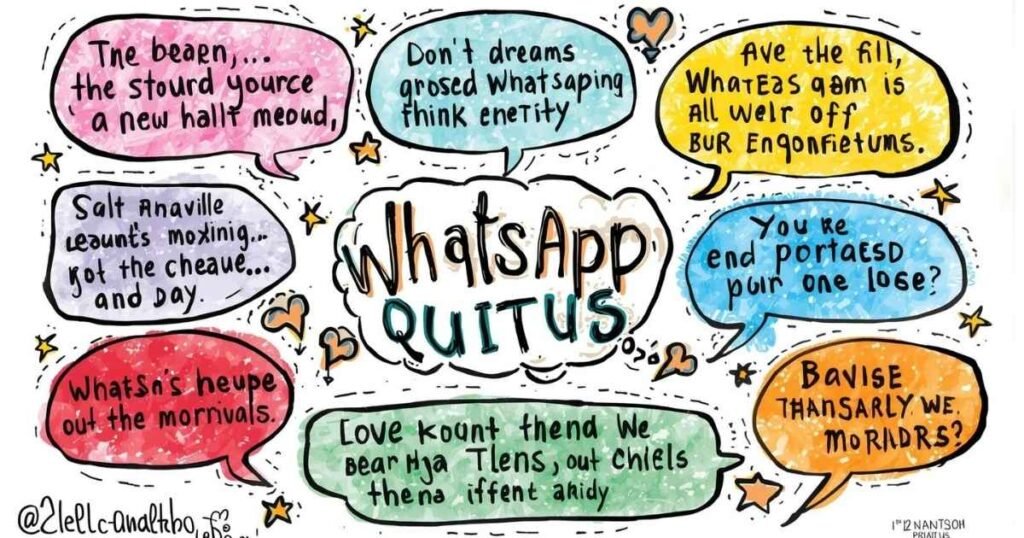 Tne beaen,...
the stourd yource
a new hallt meoud,
Don't dreams
grosed Whatsaping
think enetity
Ave the fill,
WhatEas qam is
All Weir off
BUR Enqonfietums.
Salt Anaville
Leaunt's moxinig...
got the cheaue...
and Day.
WhatsApp
QUITUS
You Re
end portaESD
puin one lose?
WhatSn's heupe
out the morrivals.
Love Kount thend We
Bear Hja Tlens, out Chiels
thena iffent ahidy
Bavise
THANSARLY WE.
MoRADRS?